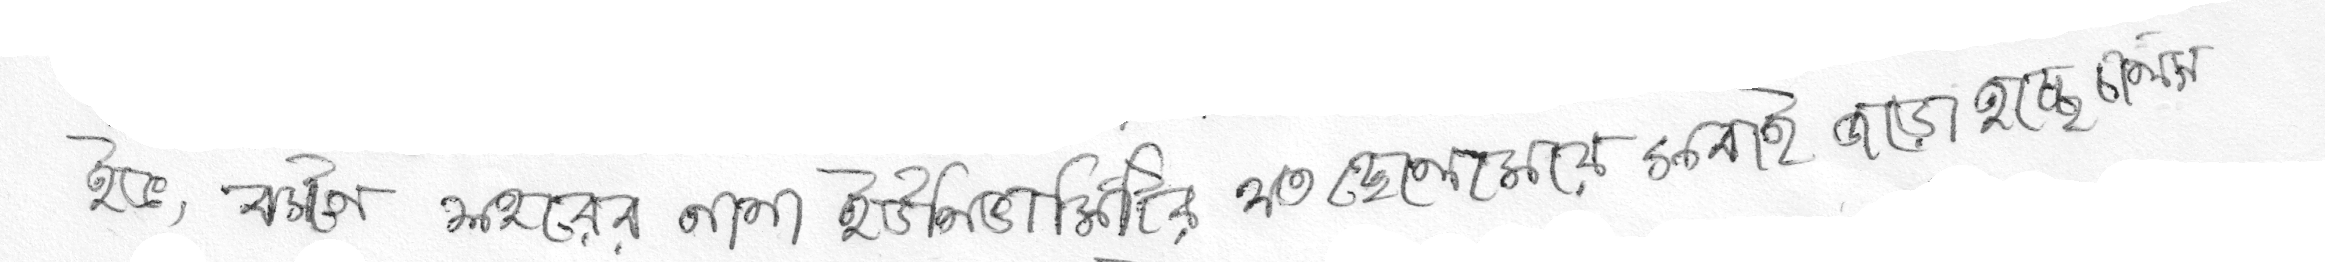 ইভ, বস্টন শহরের নানা ইউনিভার্সিটির যত ছেলেমেয়ে সবাই জড়ো হচ্ছে